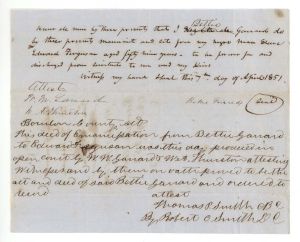 Know all men by these presents that I Bettie Garrard do
by these presents manumit and set free my negro man Slave
Edward Ferguson aged fifty nine years to be forever free and
discharged from servitude to me and my heirs
Witness my hand & Seal this 7th day of April 1851.
Attest
W. W.
Bettie Garrard (Seal)
Bourbon County Sct
The deed of emancipation from Bettie Garrard
to Edward Ferguson was this day produced in
open court by W. W. Garrard & Thurston attesting
Witnesses and by them on oath proved to be the
act and deed of said Bettie Garrard and ordered to
record
attest
Thomas P Smith CBC
By Robert C Smith D.C.